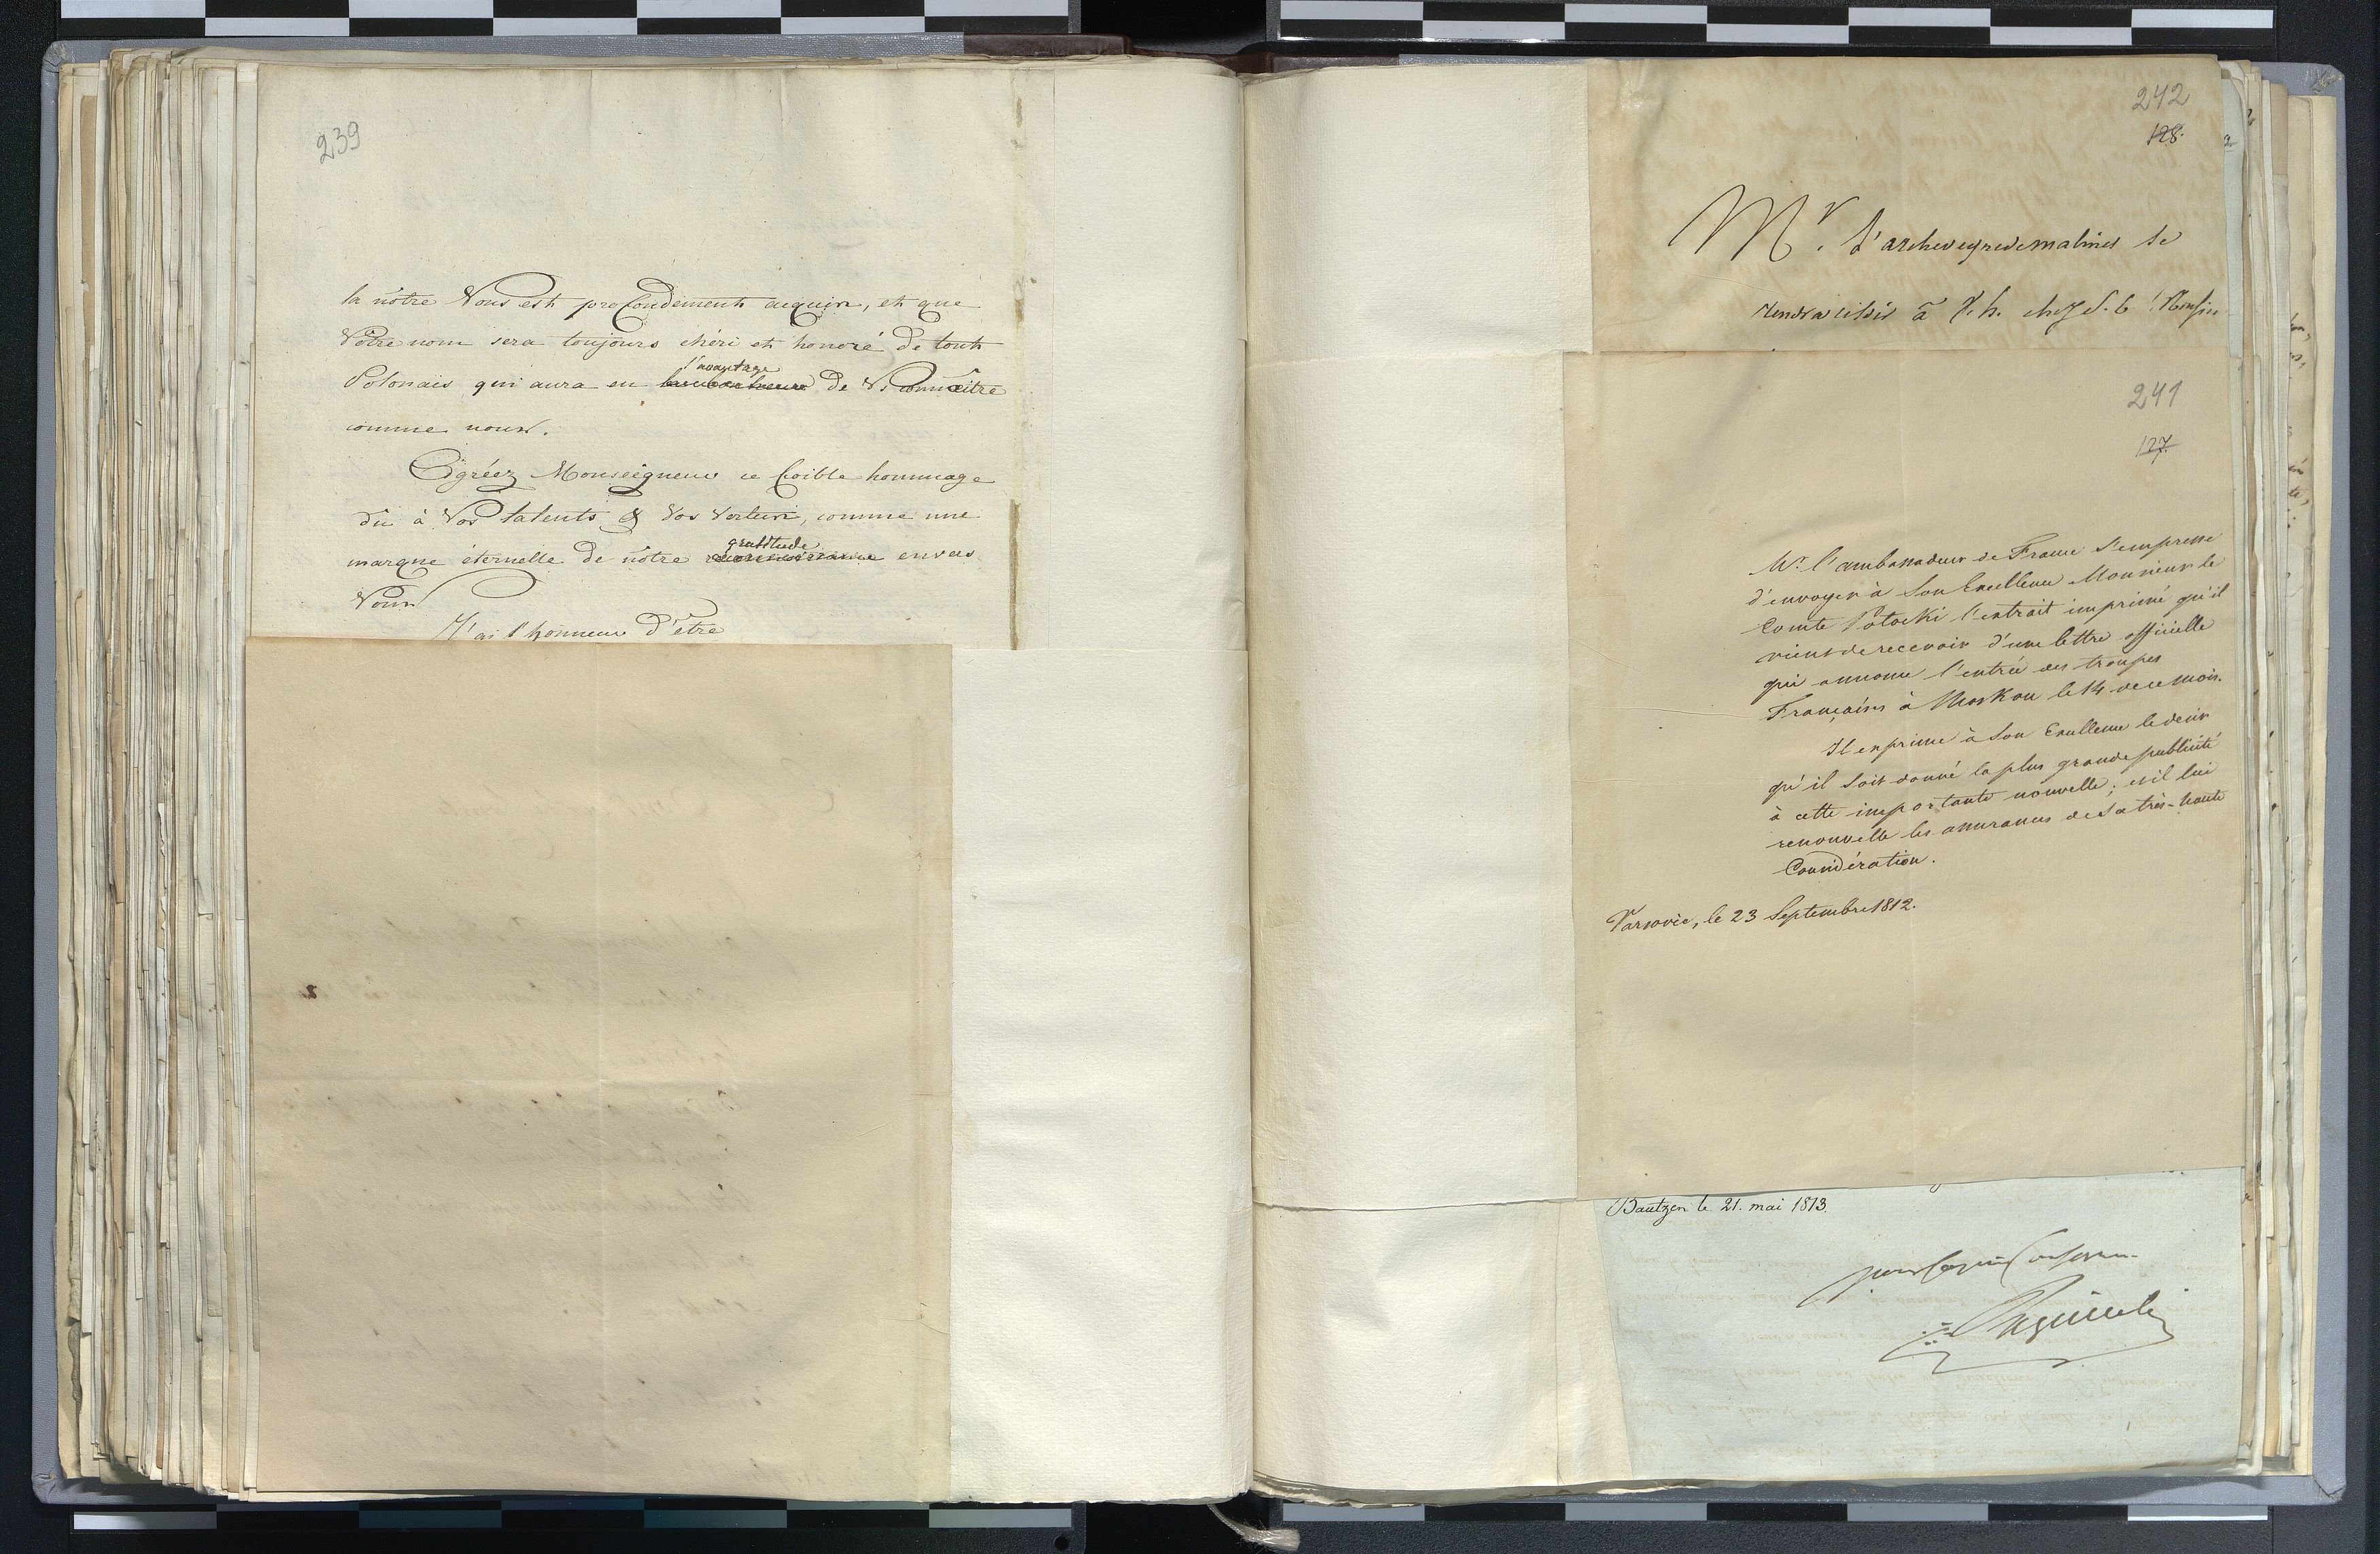 239
la nôtre Vous est profondement acquise, et que
Vôtre nom sera toujours chéri et honoré de tout
l'avantage
Polonais qui aura eu le bonheur de Vs connaître
comme nous.
Agréez Monseigneur ce foible hommage
dû à Vos talents & Vos vertus, comme une
gratitude
marque éternelle de nôtre reconnoissance envers
Vous
J'ai l'honneur d'être
242
128.
Mr. L'archeveque de malines se
rendra ce soir à 7. h. chez S. E.
241
127.
Mr. l'ambassadeur de France s'empresse
d'envoyer à Son Excellence Monsieur le
Comte Potocki l'extrait imprimé qu'il
vient de recevoir d'une lettre officielle
qui annonce l'entrée des troupes
Françaises à Moskou le 14 de ce mois.
Il exprime à Son Excellence le desir
qu'il soit donné la plus grande publicité
à cette importante nouvelle; et il lui
renouvelle les assurances de Sa très-haute
Considération.
Varsovie, le 23 Septembre 1812.
Bautzen le 21. mai 1813.
pour Copie Conforme